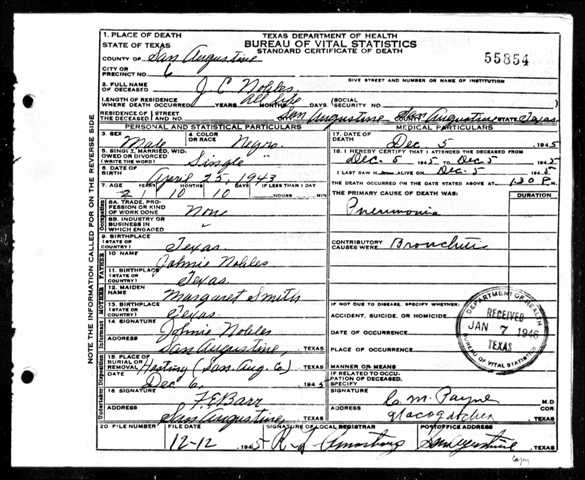 TEXAS DEPARTMENT OF HEALTH
BUREAU OF VITAL STATISTICS
STANDARD CERTIFICATE OF DEATH
55854
1. PLACE OF DEATH
STATE OF TEXAS
COUNTY OF San Augustine
CITY OR PRECINCT NO. 6
GIVE STREET AND NUMBER OR NAME OF INSTITUTION
2. FULL NAME OF DECEASED J C Nobles
LENGTH OF RESIDENCE WHERE DEATH OCCURRED YEARS MONTHS DAYS. All life (SOCIAL SECURITY NO.
RESIDENCE OF THE DECEASED STREET AND NO. San Augustine San Augustine STATE Texas
PERSONAL AND STATISTICAL PARTICULARS
3. SEX Male 4. COLOR OR RACE Negro
5. SINGLE, MARRIED, WIDOWED OR DIVORCED (WRITE THE WORD) Single
6. DATE OF BIRTH April 25, 1943
7. AGE YEARS 2 MONTHS 10 DAYS 10 IF LESS THAN 1 DAY HOURS MIN
8A. TRADE, PROFESSION OR KIND OF WORK DONE None
8B. INDUSTRY OR BUSINESS IN WHICH ENGAGED "
9. BIRTHPLACE (STATE OR COUNTRY) Texas
10 NAME Johnie Nobles
11. BIRTHPLACE (STATE OR COUNTRY) Texas
12. MAIDEN NAME Margaret Smith
13. BIRTHPLACE (STATE OR COUNTRY) Texas
14 SIGNATURE Johnie Nobles
ADDRESS San Augustine, TEXAS
15. PLACE OF BURIAL OR REMOVAL (San. Aug. Co) TEXAS
Dec 6, 1945
16 SIGNATURE F.E. Barr
ADDRESS San Augustine TEXAS
MEDICAL PARTICULARS
17. DATE OF DEATH Dec 5 1945
18. I HEREBY CERTIFY THAT I ATTENDED THE DECEASED FROM
Dec. 5 1945 TO Dec 5 1945
I LAST SAW H ALIVE ON Dec. 5 1945
THE DEATH OCCURRED ON THE DATE STATED ABOVE AT 1:30 P M.
THE PRIMARY CAUSE OF DEATH WAS: DURATION
Pneumonia
CONTRIBUTORY CAUSES WERE:
IF NOT DUE TO DISEASE, SPECIFY WHETHER:
ACCIDENT, SUICIDE, OR HOMICIDE
DATE OF OCCURRENCE
PLACE OF OCCURRENCE
MANNER OR MEANS
IF RELATED TO OCCUPATION OF DECEASED, SPECIFY
SIGNATURE C. M. Payne M.D
COR.
ADDRESS TEXAS
DEPARTMENT OF HEALTH
RECEIVED
JAN 7 1946
TEXAS
BUREAU OF VITAL STATISTICS
20 FILE NUMBER FILE DATE SIGNATURE OF LOCAL REGISTRAR POSTOFFICE ADDRESS
12-12 1945 San Augustine TEXAS
NOTE THE INFORMATION CALLED FOR ON THE REVERSE SIDE
Occupation
FATHER
MOTHER
Informant
Undertaker